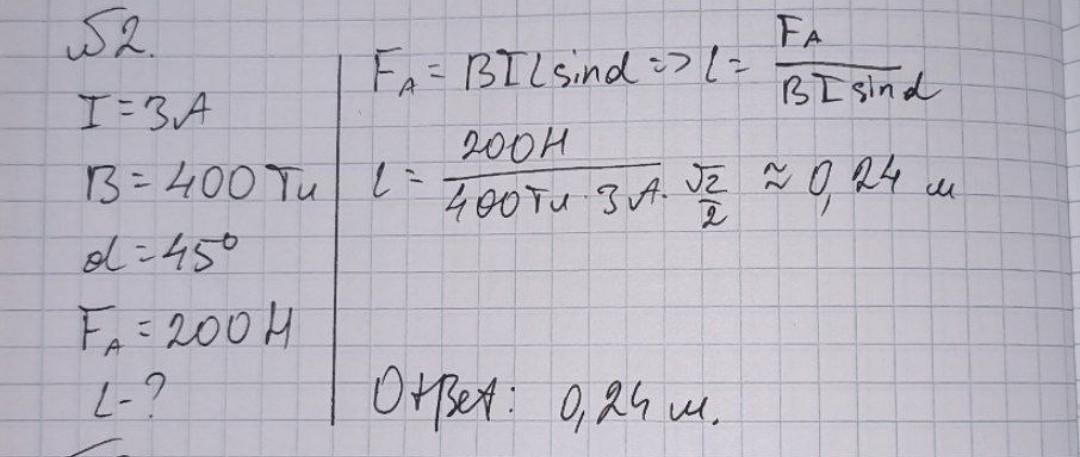 №2.
I = 3А
B = 400 Тл
α = 45°
F_A = 200 Н
L - ?
F_A = BIlsinα => l = F_A / BIsinα
l = 200Н / 400Тл · 3А · √2/2 ≈ 0,24 м
Ответ: 0,24 м.